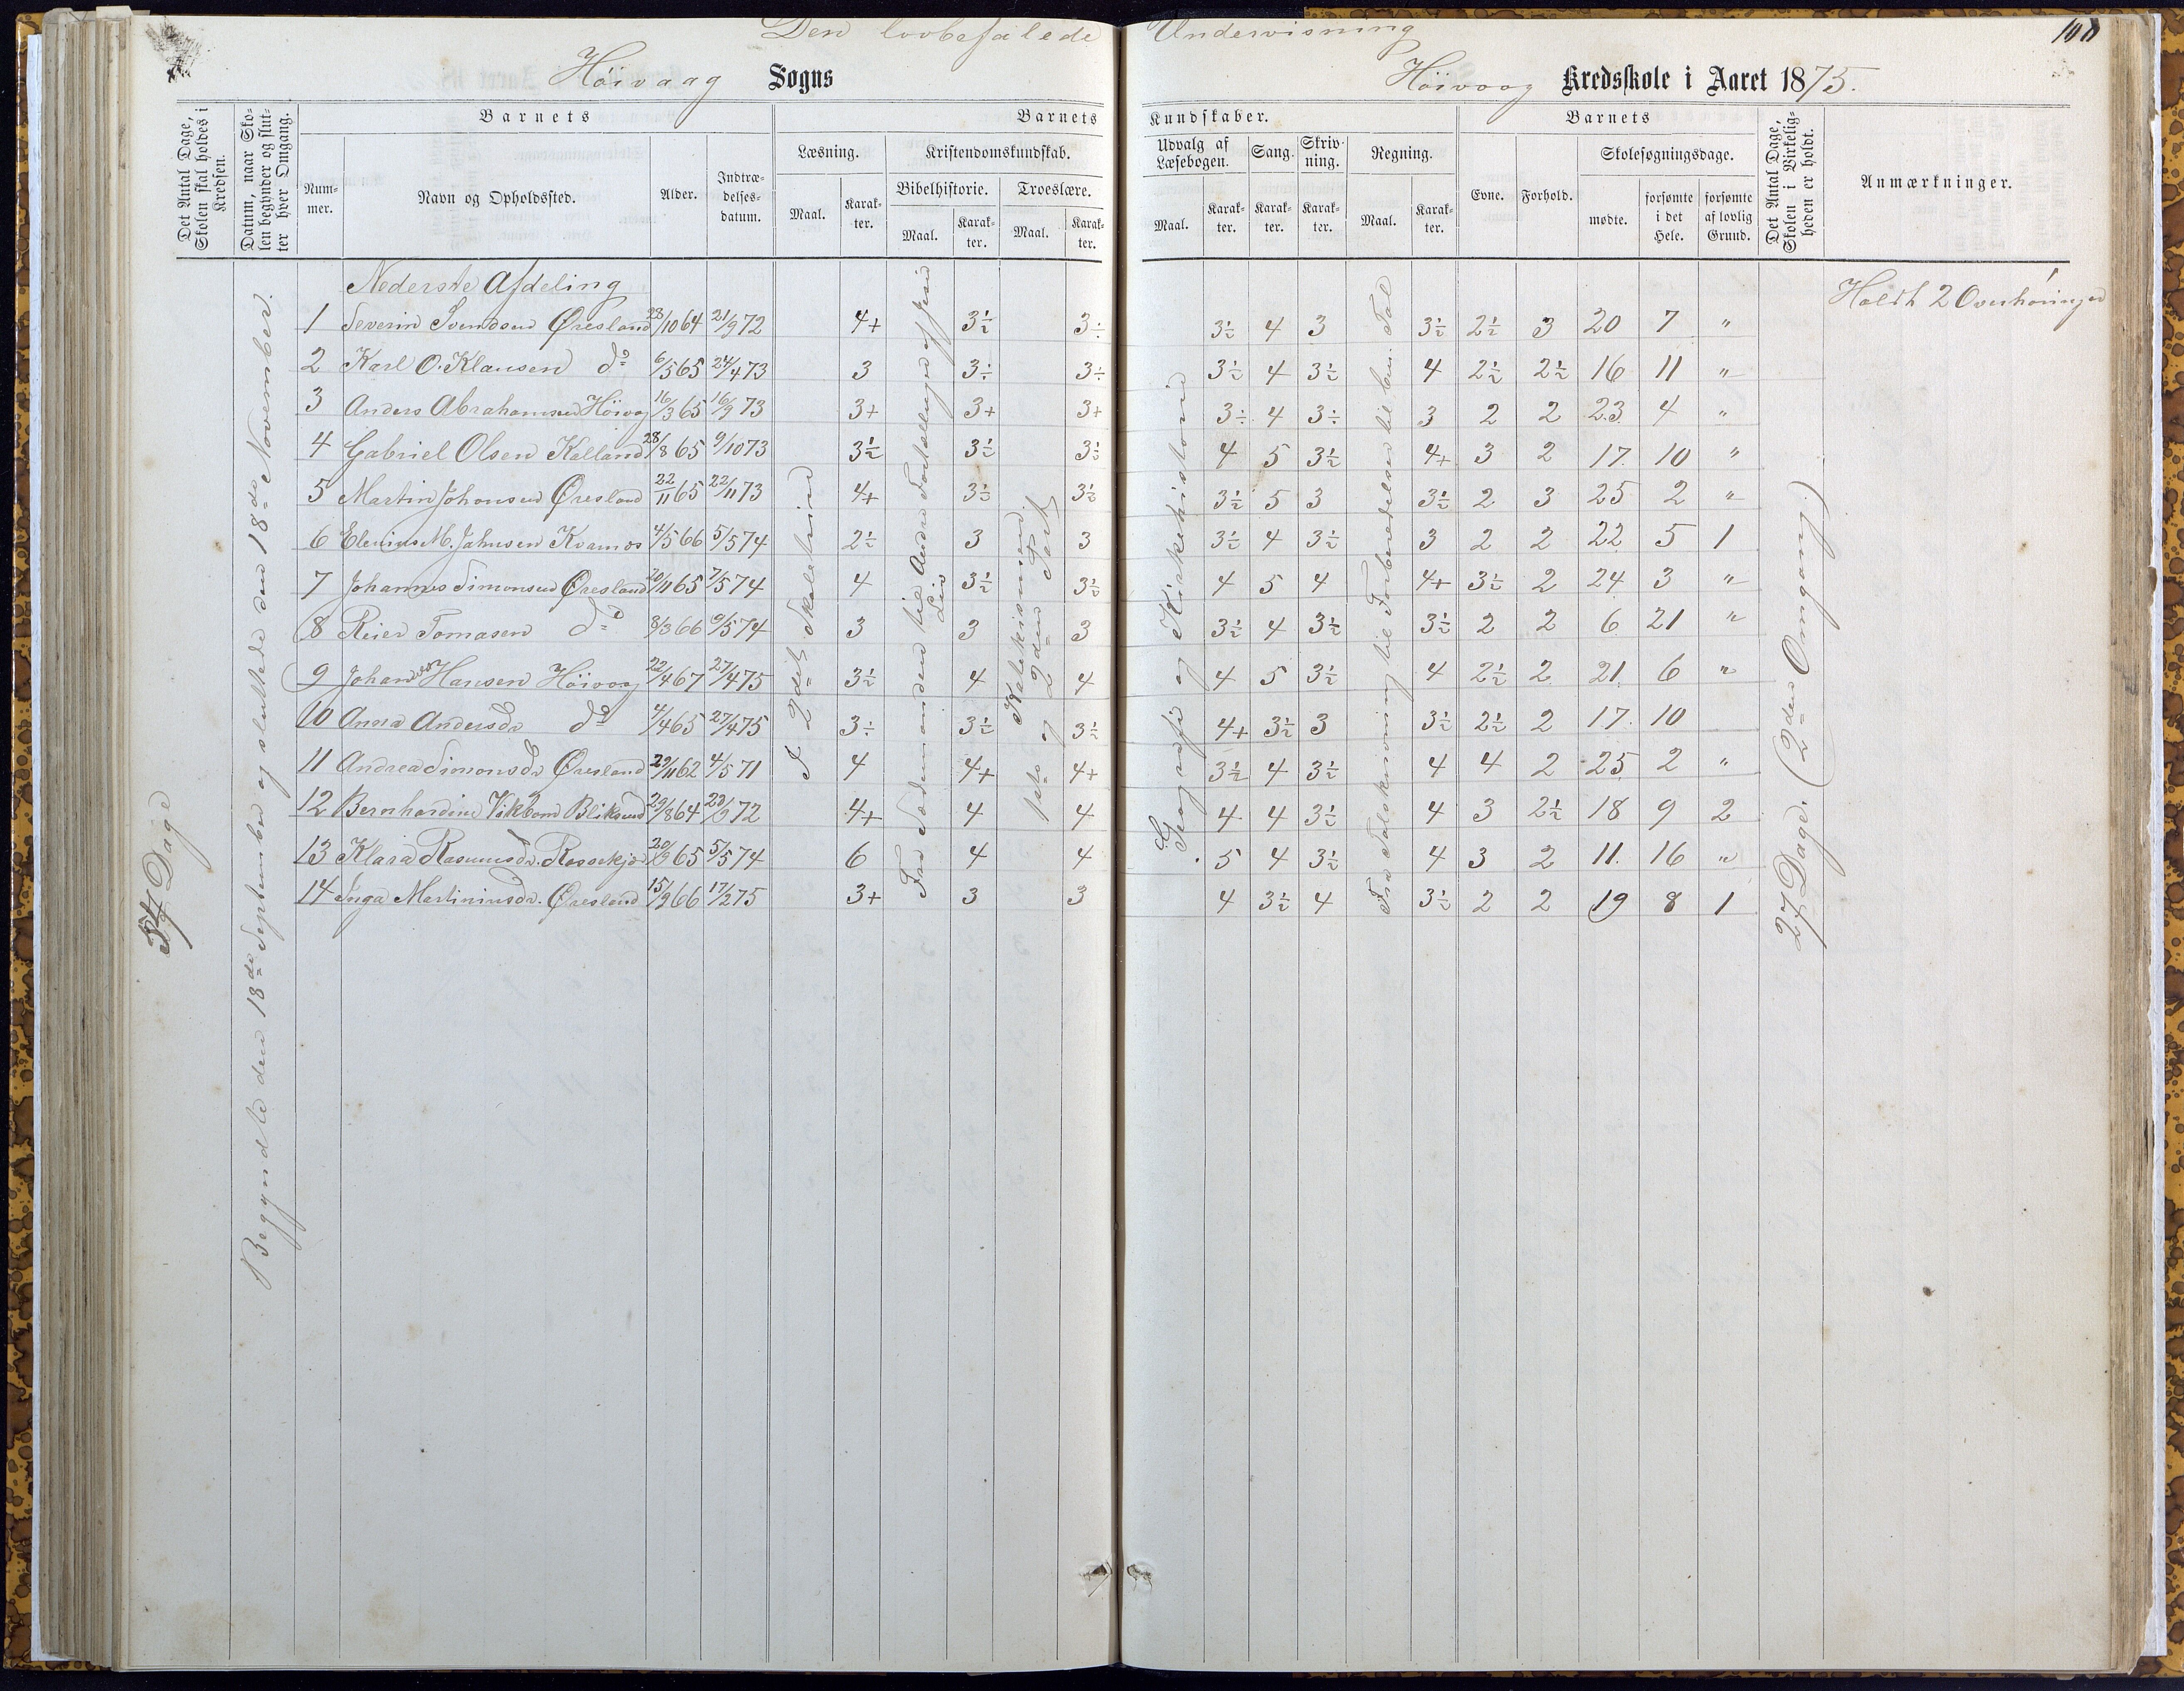 Den lovbefalede Undervisning
108
Höivaag Sogns
Höivaag Kredsskole i Aaret 1875.
Det Antal Dage, Skolen skal holdes i Kredsen.
Datum, naar Skolen begynder og slutter hver Omgang.
Barnets
Barnets Kundskaber.
Barnets
Det Antal Dage, Skolen i Virkeligheden er holdt.
Anmærkninger.
Nummer.
Navn og Opholdssted.
Alder.
Indtrædelses-datum.
Læsning.
Kristendomskundskab.
Udvalg af Læsebogen.
Sang.
Skrivning.
Regning.
Evne.
Forhold.
Skolesøgningsdage.
Bibelhistorie.
Troeslære.
Maal. Karakter. Maal. Karakter. Maal. Karakter.
Maal. Karakter. Karakter. Karakter. Maal. Karakter. mødte. forsømte i det Hele. forsømte af lovlig Grund.
54 Dage
Begyndte den 18de September og sluttede den 18de November.
Nederste Afdeling
Holdt 2 Overhöringer
1 Severin Svendsen Øresland 23/10 64 21/9 72 4+ 3½ 3÷ 3½ 4 3 3½ 2½ 3 20 7 "
2 Karl O. Klausen do 6/5 65 24/4 73 3 3÷ 3÷ 3½ 4 3½ 4 2½ 2½ 16 11 "
3 Anders Abrahamsen Höivag 16/3 65 16/9 73 3+ 3+ 3+ 3÷ 4 3÷ 3 2 2 23 4 "
4 Gabriel Olsen Kalland 28/8 65 9/10 73 3½ 3½ 3½ 4 5 3½ 4+ 3 2 17 10 "
5 Martin Johansen Øresland 22/11 65 22/11 73 4+ 3½ 3½ 3½ 5 3 3½ 2 3 25 2 "
6 Elenius M. Jahnsen Kvamos 4/5 66 5/5 74 2½ 3 3 3½ 4 3½ 3 2 2 22 5 1
7 Johannes Simonsen Øresland 20/11 65 7/5 74 4 3½ 3½ 4 5 4 4+ 3½ 2 24 3 "
8 Reier Tomasen do 8/3 66 9/5 74 3 3 3 3½ 4 3½ 3½ 2 2 6 21 "
9 Johannes Hansen Höivaag 22/4 67 27/4 75 3½ 4 4 4 5 3½ 4 2½ 2 21 6 "
10 Anna Andersdr do 4/4 65 27/4 75 3÷ 3½ 3½ 4+ 3½ 3 3½ 2½ 2 17 10
11 Andrea Simonsdr Øresland 29/11 62 4/5 71 4 4+ 4+ 3½ 4 3½ 4 4 2 25 2 "
12 Bernhardine Vikbom Bliksund 29/8 64 23/9 72 4+ 4 4 4 4 3½ 4 3 2½ 18 9 2
13 Klara Rasmusdr. Rossekjær 20/9 65 5/5 74 6 4 4 5 4 3½ 4 3 2 11 16 "
14 Inga Martiniusdr. Øresland 15/9 66 17/2 75 3+ 3 3 4 3½ 4 3½ 2 2 19 8 1
I 2det Skoletrind
Fra Sædemanden til Andre Fortællinger af Jesu Liv
Katekismen 1ste og 2den Part
Geografi og Kirkehistorie
Fra Talskrivning til Forberedelser til ben. Tal
27 Dage. (2den Omgang.)